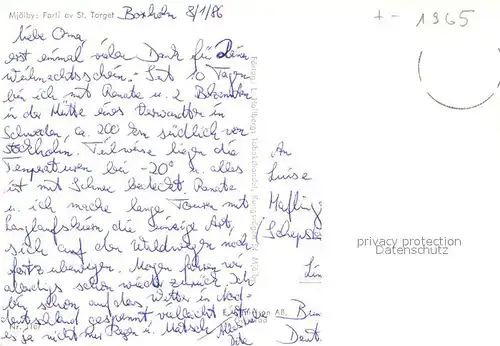 Mjölby: Parti av St. Torget Boxholm 3/1/86
+ - 1965
liebe Oma,
erst einmal vielen Dank für Deinen
Weihnachtsschein. Seit 10 Tagen
bin ich mit Renate u. 2 Bekannten
in der Hütte eines Verwandten in
Schweden, ca. 200 km südlich von
Stockholm. Teilweise liegen die
Temperaturen bei -20° u. alles
ist mit Schnee bedeckt. Renate
u. ich machen lange Touren mit
Langlaufskiern, die einzige Art,
sich auf den Waldwegen noch
fortzubewegen. Morgen fahren wir
allerdings schon wieder zurück. Ich
bin schon auf das Wetter in Nord-
deutschland gespannt, vielleicht
es ja nicht nur Regen u. Matsch.
Alles
An
Luise
privacy protection
Datenschutz